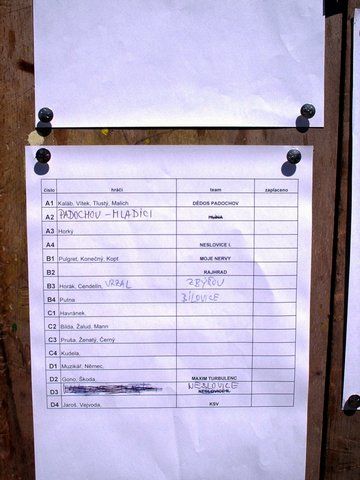 číslo hráči team zaplaceno
A1 Kaláb, Vítek, Tlustý, Malich DĚDOS PADOCHOV
A2 PADOCHOV - MLADÍCI
A3 Horký
A4 NESLOVICE I.
B1 Pulgret, Konečný, Kopt MOJE NERVY
B2 RAJHRAD
B3 Horák, Cendelín, VRZAL ZBÝŠOV
B4 Putna BÍLOVICE
C1 Havránek,
C2 Bilda, Žalud, Mann
C3 Pruša, Ženatý, Černý
C4 Kudela,
D1 Muzikář, Němec,
D2 Gono, Škoda, MAXIM TURBULENC
D3 NESLOVICE
NESLOVICE II.
D4 Jaroš, Vejvoda, KSV